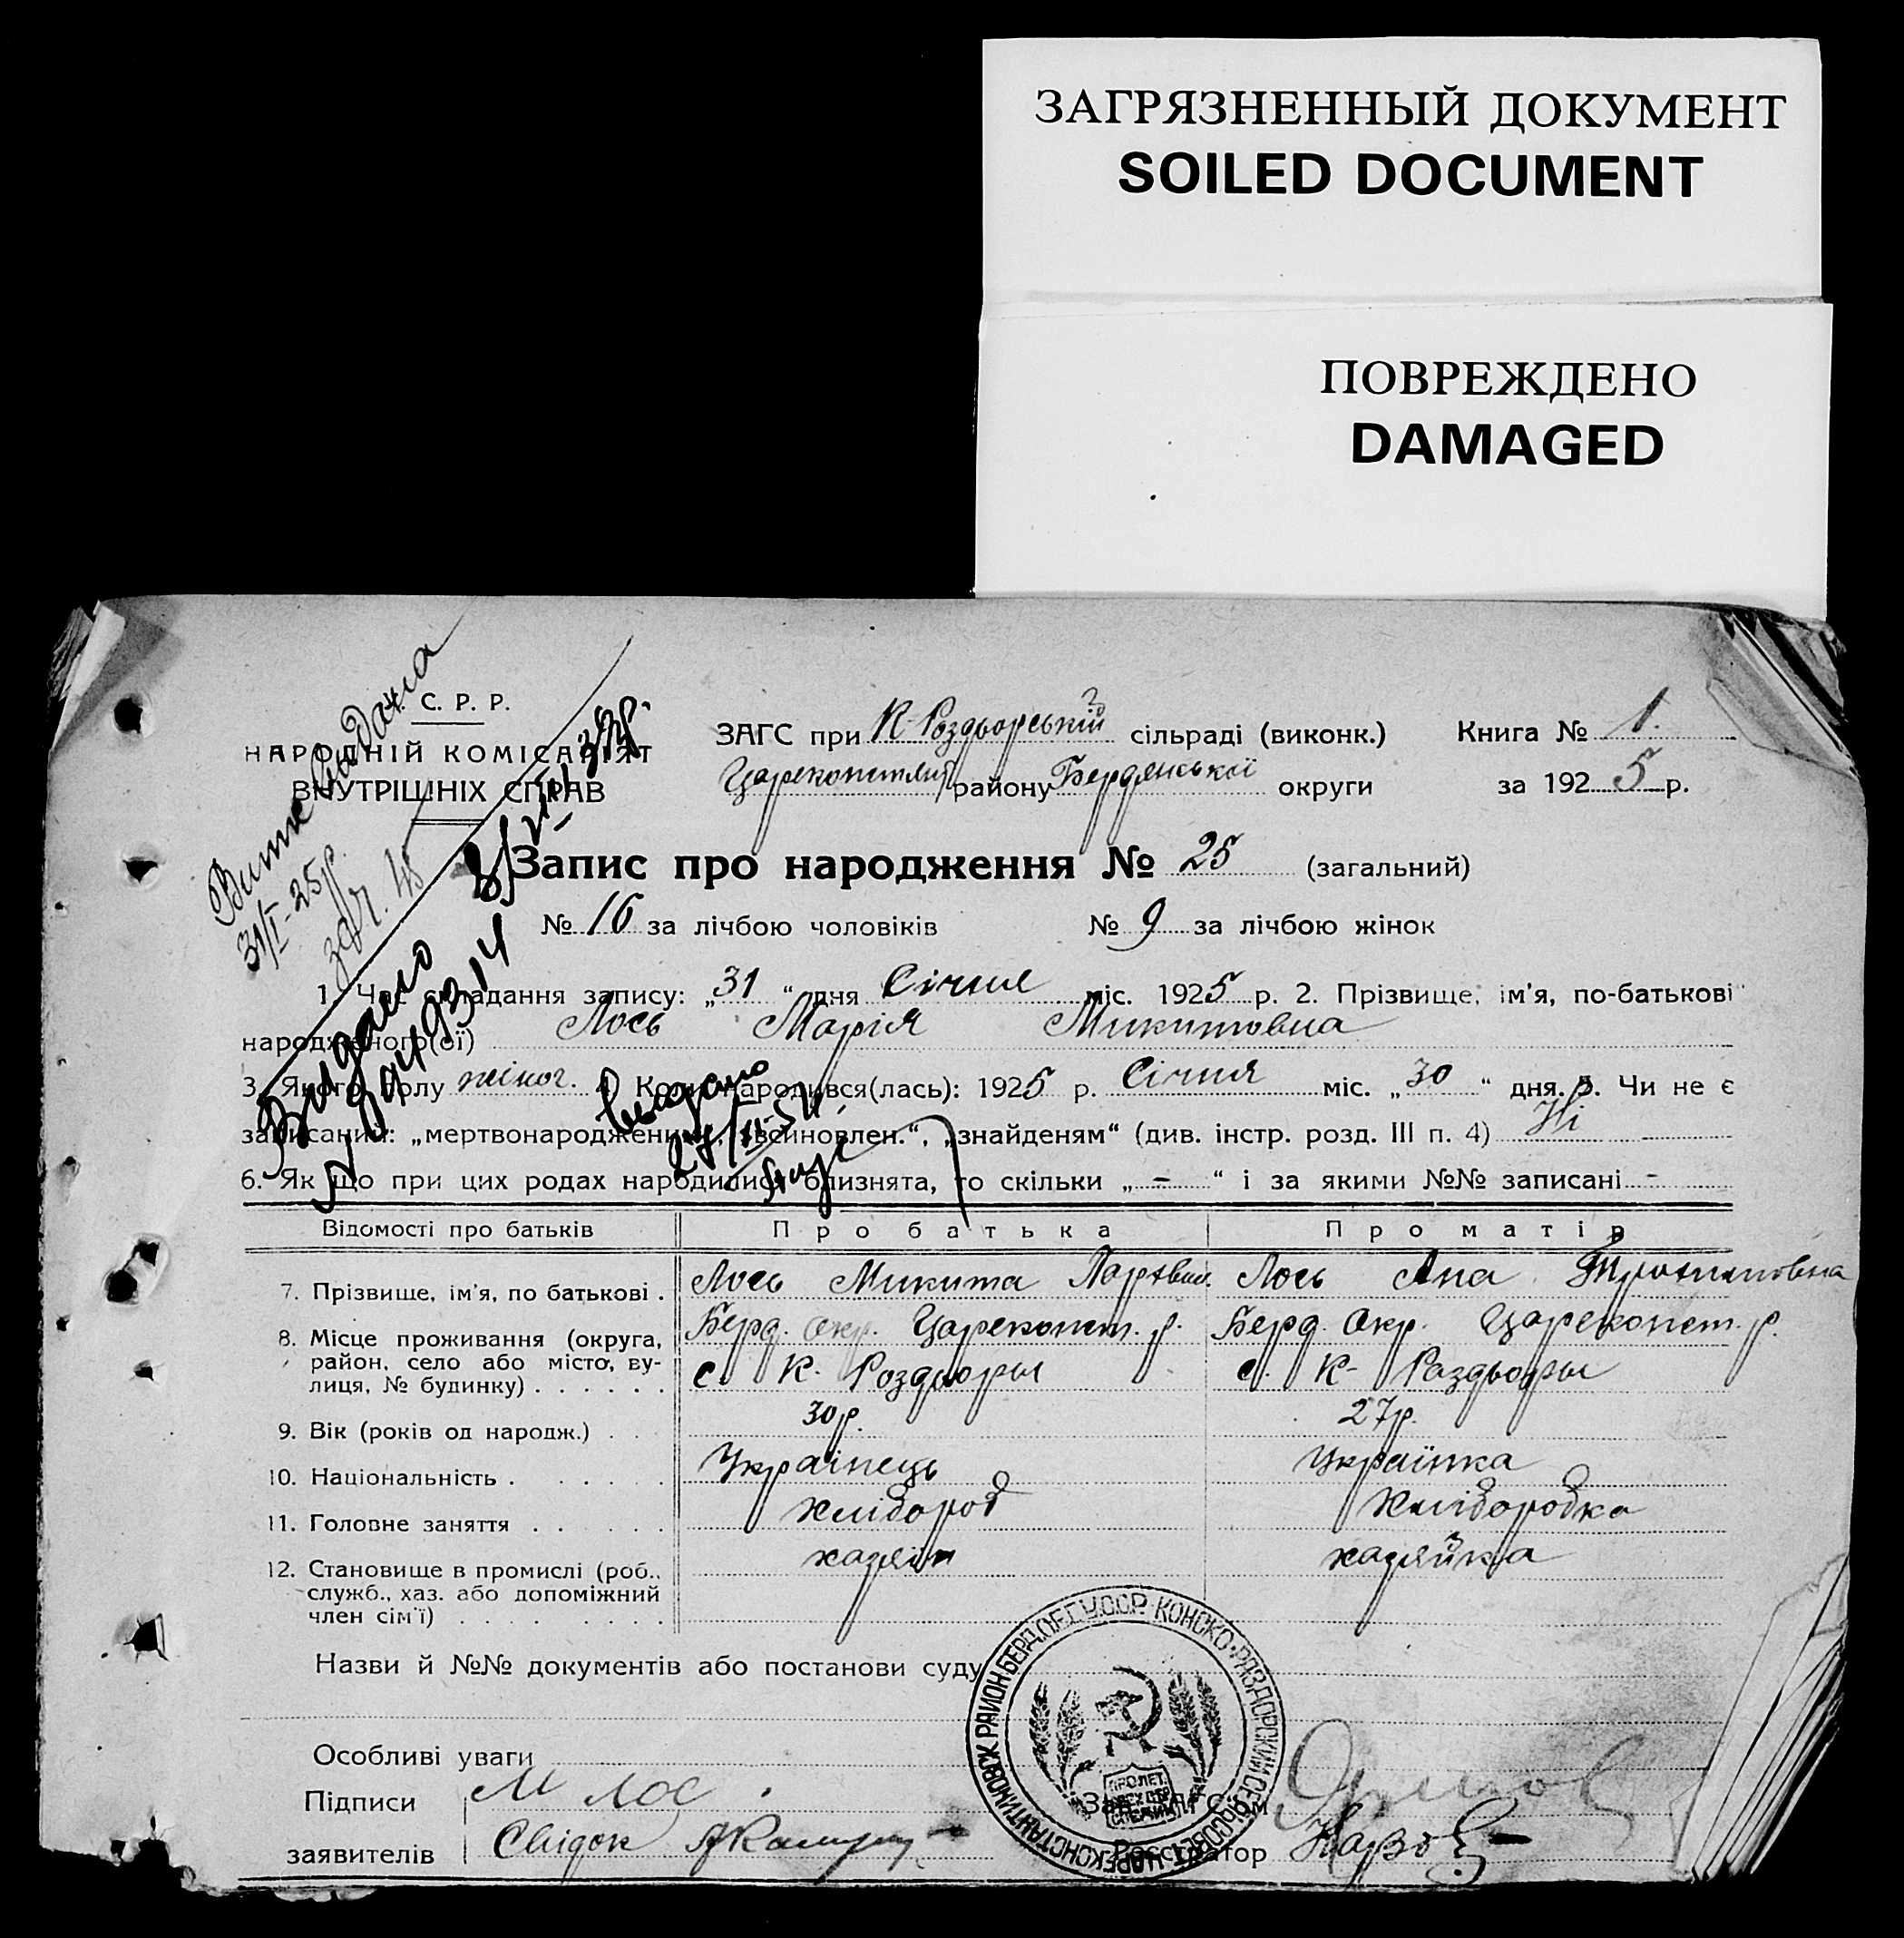 ЗАГРЯЗНЕННЫЙ ДОКУМЕНТ
SOILED DOCUMENT
ПОВРЕЖДЕНО
DAMAGED
С. Р. Р.
НАРОДНІЙ КОМІСАРІЯТ
ВНУТРІШНІХ СПРАВ
ЗАГС при К-Роздьорській сільраді (виконк.) Книга № 1.
району Бердянської округи за 1925 р.
Запис про народження № 25 (загальний)
№ 16 за лічбою чоловіків № 9 за лічбою жінок
31/I-25р.
Видано
1. Час складання запису: „31“ дня Січня міс. 1925 р. 2. Прізвище, ім'я, по-батькові
народженого(ої) Лось Марія Микитовна
3. Якого полу жіноч. 4. Коли народився(лась): 1925 р. Січня міс. „30“ дня. 5. Чи не є
записаний: „мертвонародженим“, „всиновлен.“, „знайденям“ (див. інстр. розд. III п. 4) Ні
6. Як що при цих родах народилися близнята, то скільки „ - “ і за якими №№ записані -
Відомості про батьків Про батька Про матір
7. Прізвище, ім'я, по батькові . Лось Микита Лось Ана
8. Місце проживання (округа, Берд. Окр. Цареконст. р. Берд. Окр. Цареконст. р.
район, село або місто, ву- с. К. Роздьоры с. К- Раздьоры
лиця, № будинку) . . . . . .
9. Вік (років од народж.) . . 30р. 27р.
10. Національність . . . . . Українець Українка
11. Головне заняття . . . . . Хлібороб Хліборобка
12. Становище в промислі (роб., хазяїн хазяйка
служб., хаз. або допоміжний
член сім'ї) . . . . . .
Назви й №№ документів або постанови суду
Особливі уваги
Підписи М Лос
Зав. ЗАГС'ом
заявителів Свідок
Реєстратор
ЦАРЕКОНСТАНТИНОВСК РАЙОН БЕРД.О.Е.Г.У.С.С.Р. КОНСКО-РАЗДОРСКИЙ СЕЛЬСОВЕТ
ПРОЛЕТ.